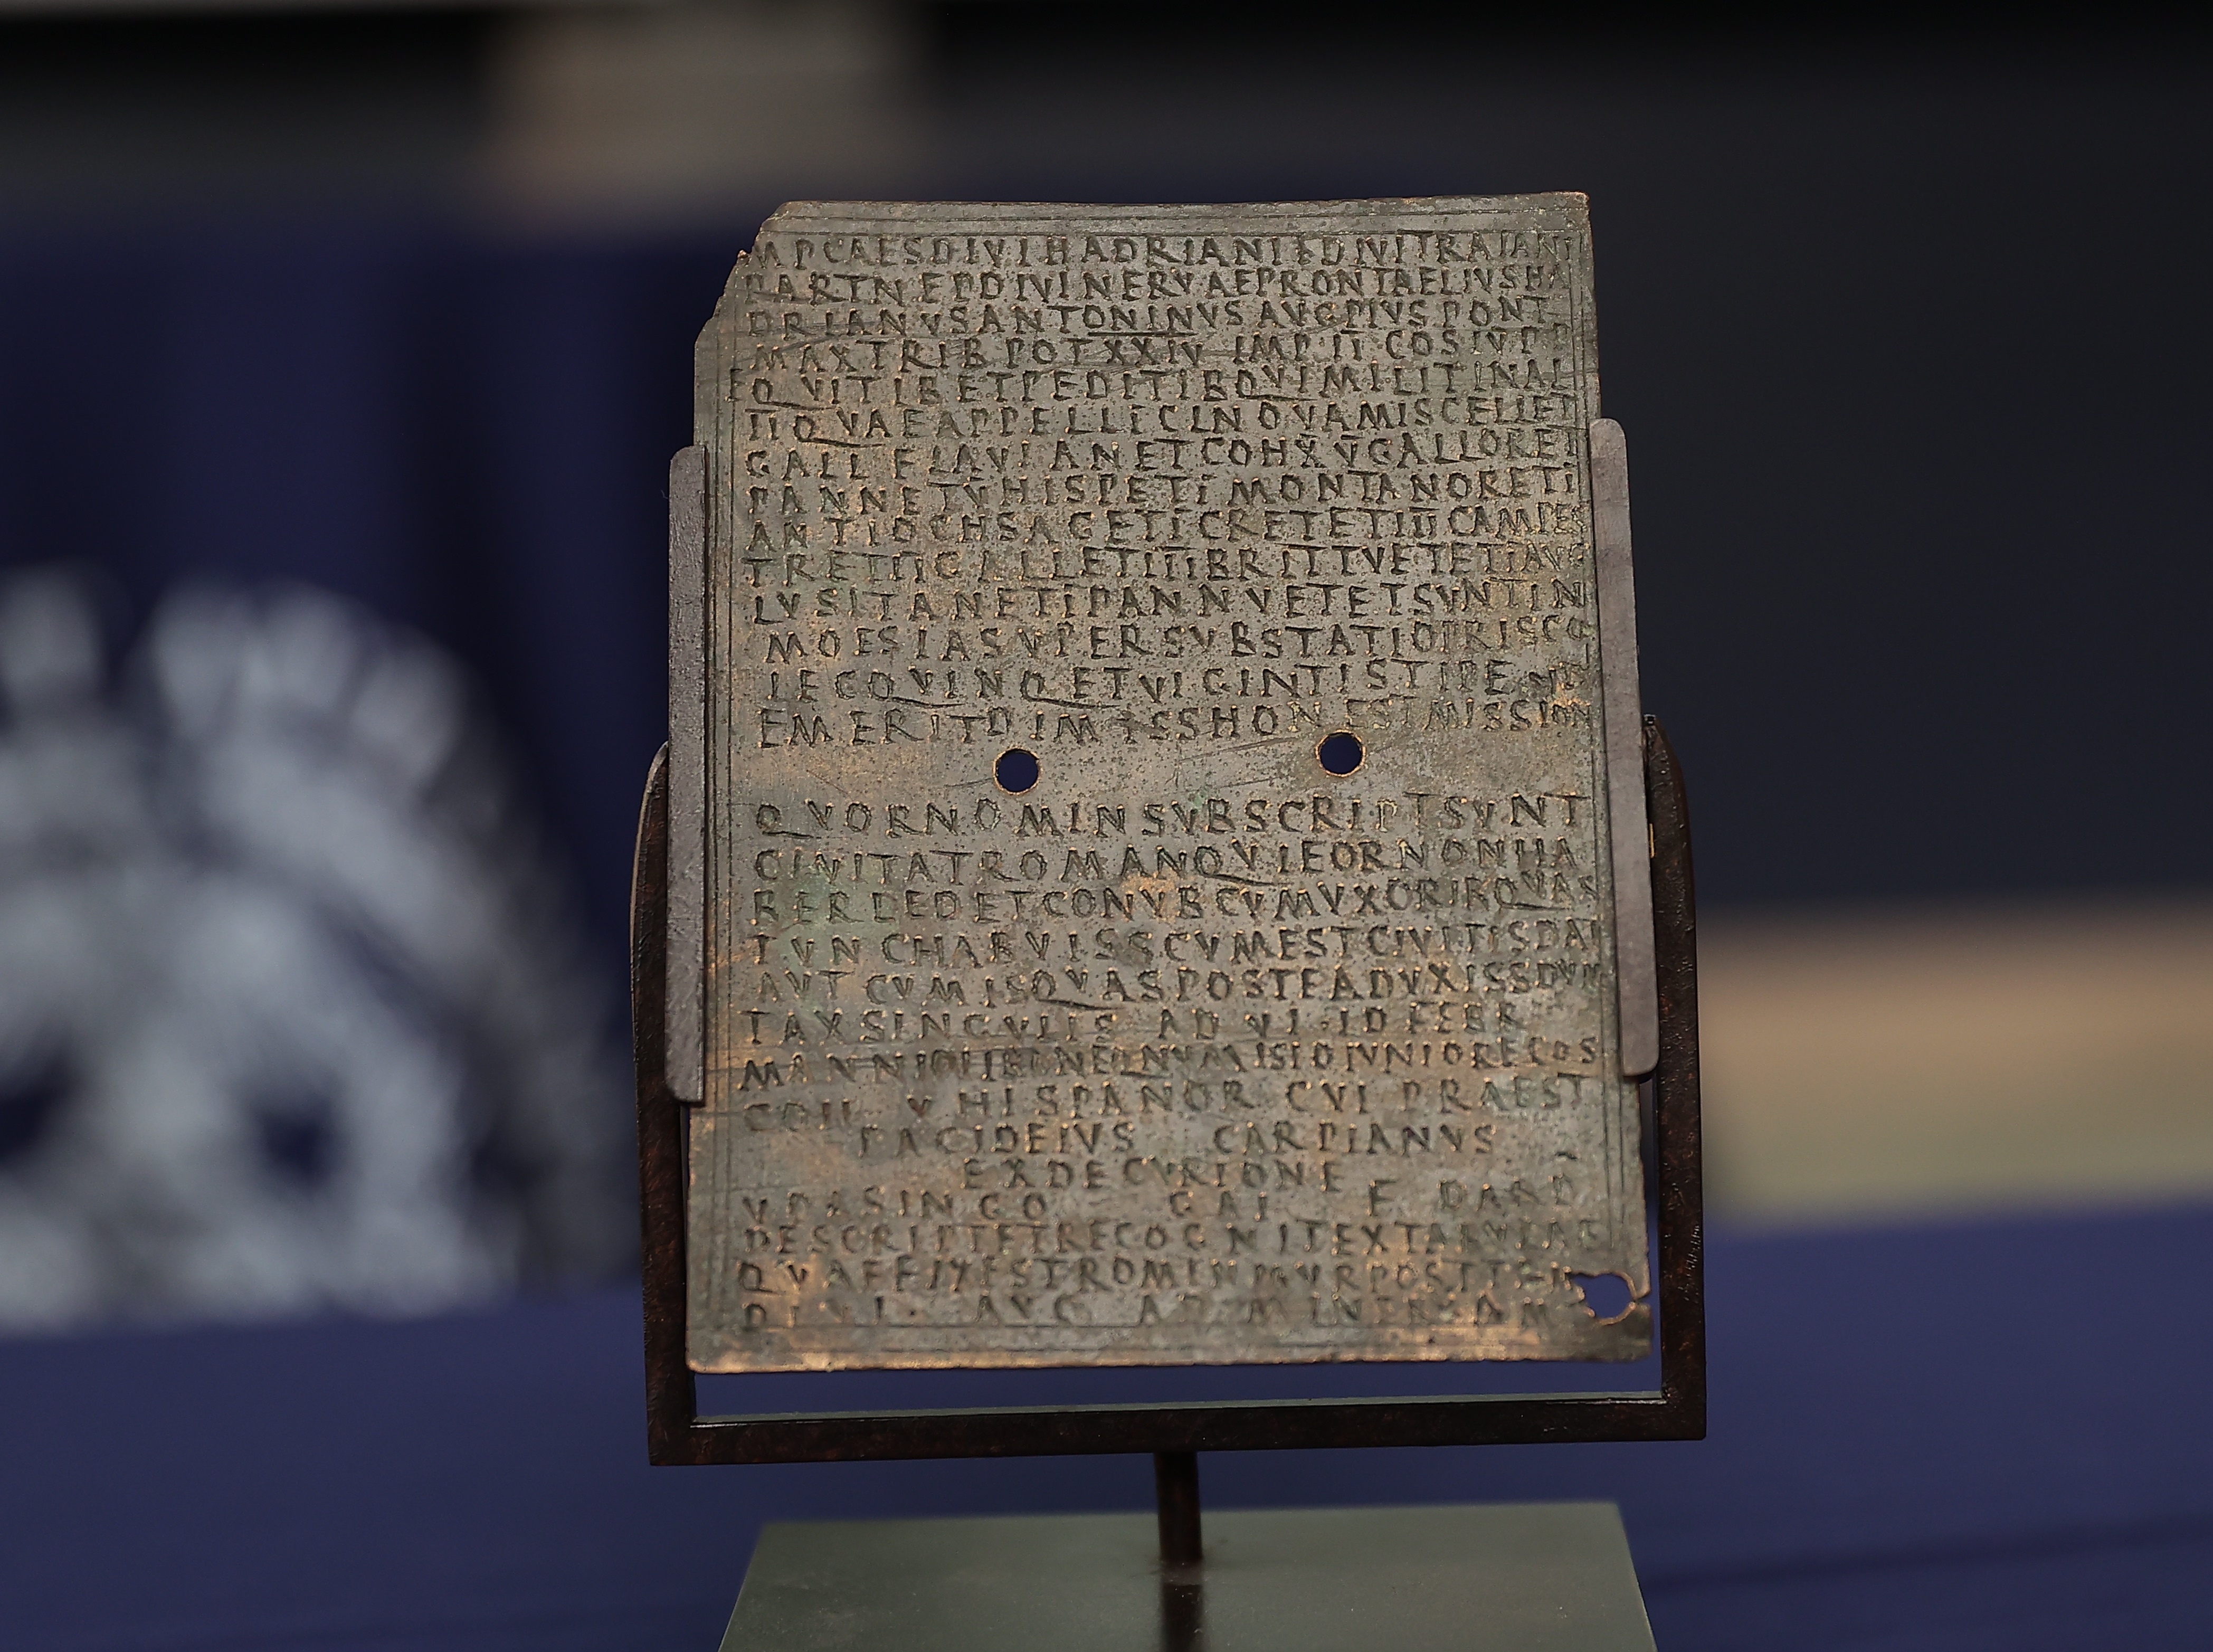 MPCAESDIVIHADRIANIFDIVITRAIANI
PARTNEPDIVINERVAEPRONTAELIVSHA
DRIANVSANTONINVSAVGPIVSPONT
MAXTRIBPOTXXIV IMP II COSIVPP
EQVITIBETPEDITIBQVIMILITINAL
IIQVAEAPPELLICLNOVAMISCELLET
GALLFLAVIANETCOHXVGALLORET
PANNETVHISPETIMONTANORETI
ANTIOCHSAGETICRETETIIICAMPES
TRETIIIGALLETIIIBRITTVETETIAVG
LVSITANETIPANNVETETSVNTIN
MOESIASVPERSVBSTATIOPRISCO
LEGQVINQETVIGINTISTIPE
EMERITDIMISSHONESTMISSION
QVORNOMINSVBSCRIPTSVNT
CIVITATROMANQVIEORNONHA
BERDEDETCONVBCVMVXORIBQVAS
TVNCHABVISSCVMESTCIVITISDAT
AVT CVMISQVASPOSTEADVXISSDVM
TAXSINGVLIS AD VI ID FEBR
MANNIOLIBONEQNVMISIOIVNIORECOS
COH V HISPANOR CVI PRAEST
PACIDEIVS CARPIANVS
EXDECVRIONE
VDASINGO GAI F DARD
DESCRIPTETRECOGNITEXTABVLAE
QVAEFIXESTROMINMVRPOSTTE
DIVI AVG AD MINERVAM